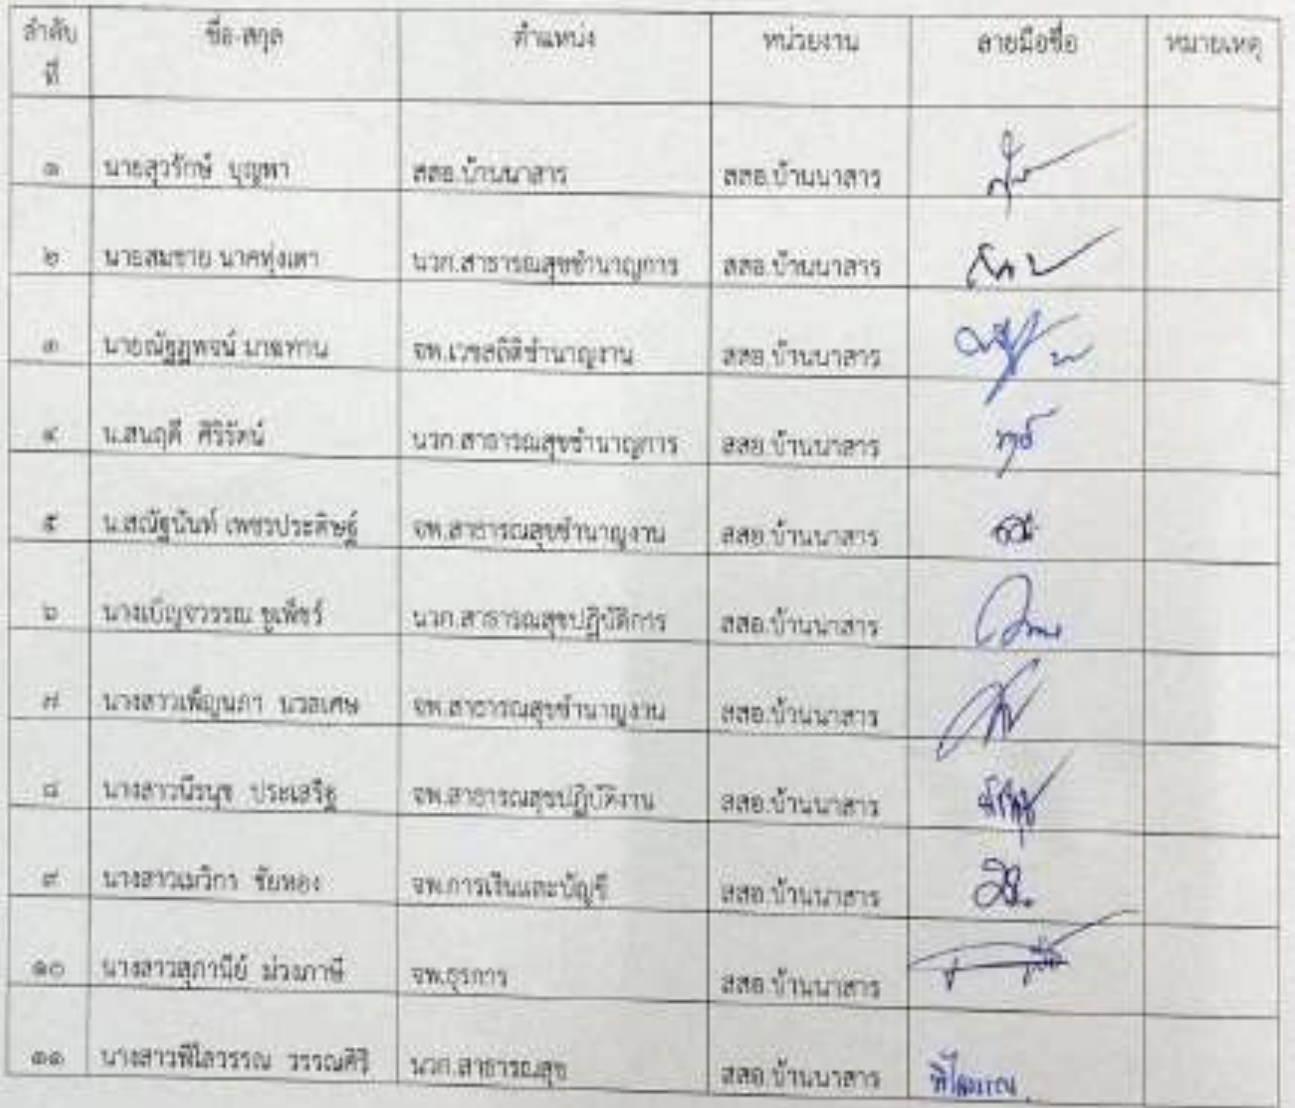 ลำดับที่ ชื่อ-สกุล ตำแหน่ง หน่วยงาน ลายมือชื่อ หมายเหตุ
๑ นายสุวรักษ์ บุญพา สสอ.บ้านนาสาร สสอ.บ้านนาสาร
๒ นายสมชาย นาคทุ่งเตา นวก.สาธารณสุขชำนาญการ สสอ.บ้านนาสาร
๓ นายณัฐฏพจน์ จพ.เวชสถิติชำนาญงาน สสอ.บ้านนาสาร
๔ น.สนฤดี ศิริรัตน์ นวก.สาธารณสุขชำนาญการ สสอ.บ้านนาสาร
๕ น.สณัฐนันท์ เพชรประดิษฐ์ จพ.สาธารณสุขชำนาญงาน สสอ.บ้านนาสาร
๖ นางเบ็ญจวรรณ ชูเพ็ชร์ นวก.สาธารณสุขปฏิบัติการ สสอ.บ้านนาสาร
๗ นางสาวเพ็ญนภา นวลเศษ จพ.สาธารณสุขชำนาญงาน สสอ.บ้านนาสาร
๘ นางสาวนีรนุช ประเสริฐ จพ.สาธารณสุขปฏิบัติงาน สสอ.บ้านนาสาร
๙ นางสาวเมวิกา ชัยทอง จพ.การเงินและบัญชี สสอ.บ้านนาสาร
๑๐ นางสาวสุภานีย์ ม่วงภาษี จพ.ธุรการ สสอ.บ้านนาสาร
๑๑ นางสาวพิไลวรรณ วรรณศิริ นวก.สาธารณสุข สสอ.บ้านนาสาร พิไลวรรณ